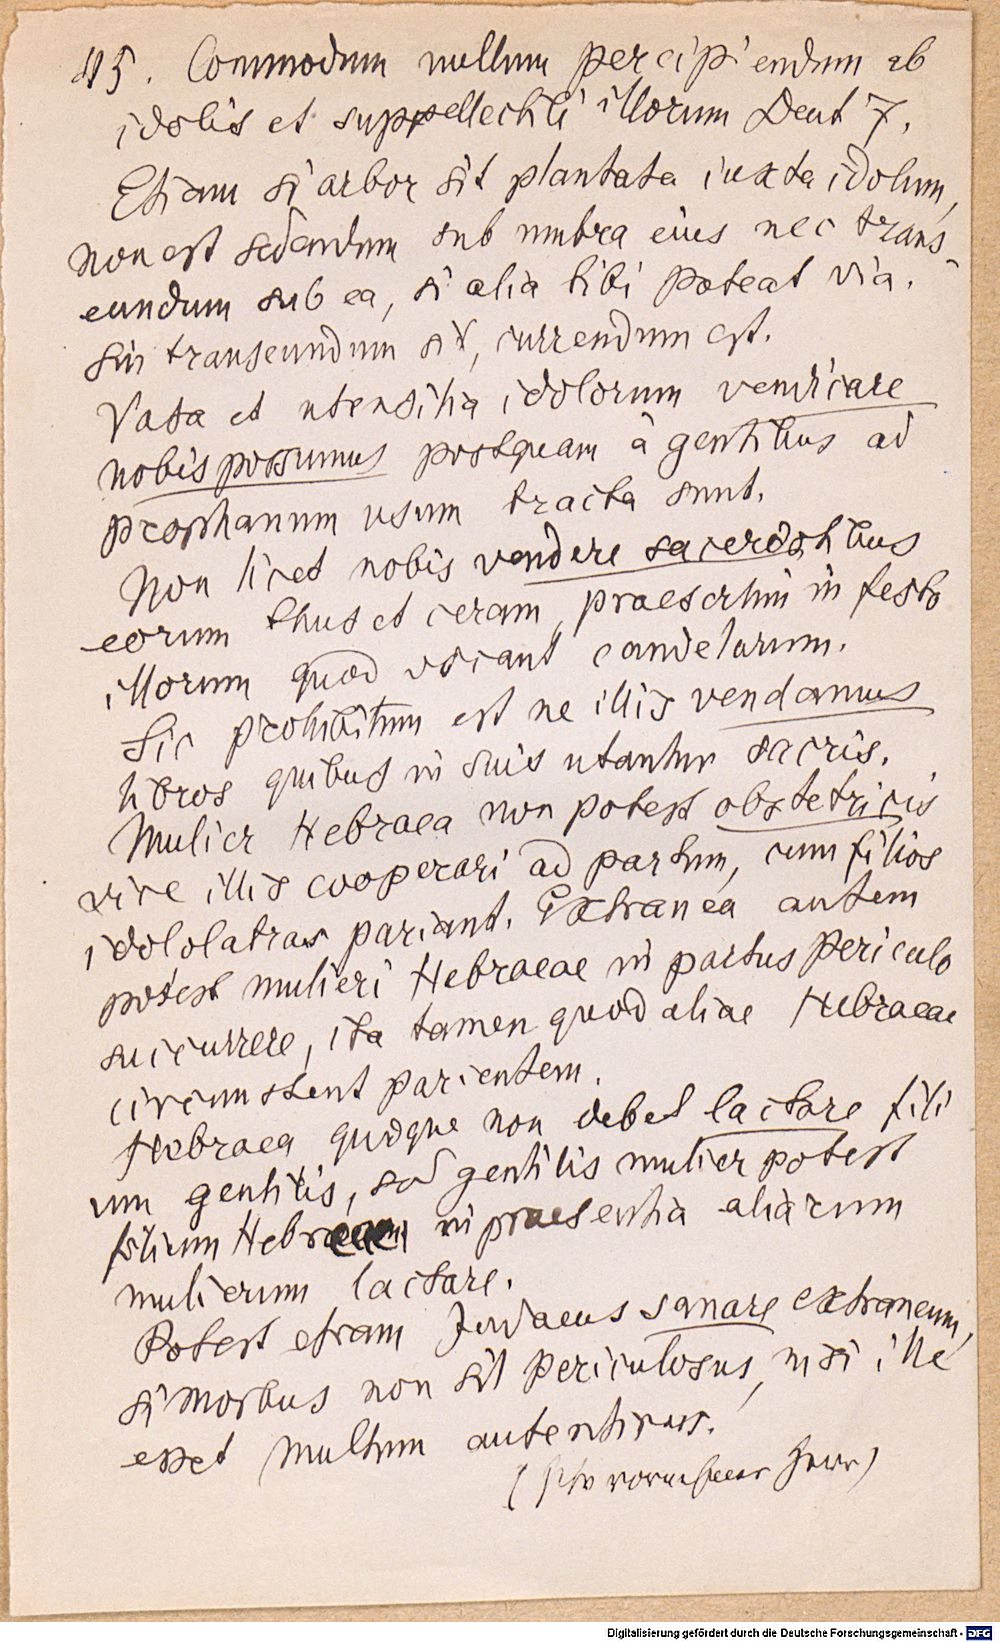 45. Commodum nullum percipiendum ab
idolis et suppellectili illorum Deut 7.
Etiam si arbor sit plantata iuxta idolum,
non est sedendum sub umbra eius nec trans-
eundum sub ea, si alia tibi pateat via.
Sin transeundum sit, currendum est.
Vasa et utensilia idolorum vendicare
nobis possumus postquam à gentibus ad
prophanum usum tracta sunt.
Non licet nobis vendere sacerdotibus
eorum thus et ceram, praesertim in festo
illorum quod vocant candelarum.
Sic prohibitum est ne illis vendamus
libros quibus in suis utantur sacris.
Mulier Hebraea non potest obstetricis
vice illis cooperari ad partum, cum filios
idololatras pariant. Extranea autem
potest mulieri Hebraeae in partus periculo
succurrere, ita tamen quod aliae Hebraeae
circumstent parientem.
Hebraea quoque non debet lactare fili
um gentilis, sed gentilis mulier potest
filium Hebraei in praesentia aliarum
mulierum lactare.
Potest etiam Judaeus sanare extraneum,
si morbus non sit periculosus, nisi ille
esset multum autenticus.
(sehr vornehmer Herr)
Digitalisierung gefördert durch die Deutsche Forschungsgemeinschaft - DFG